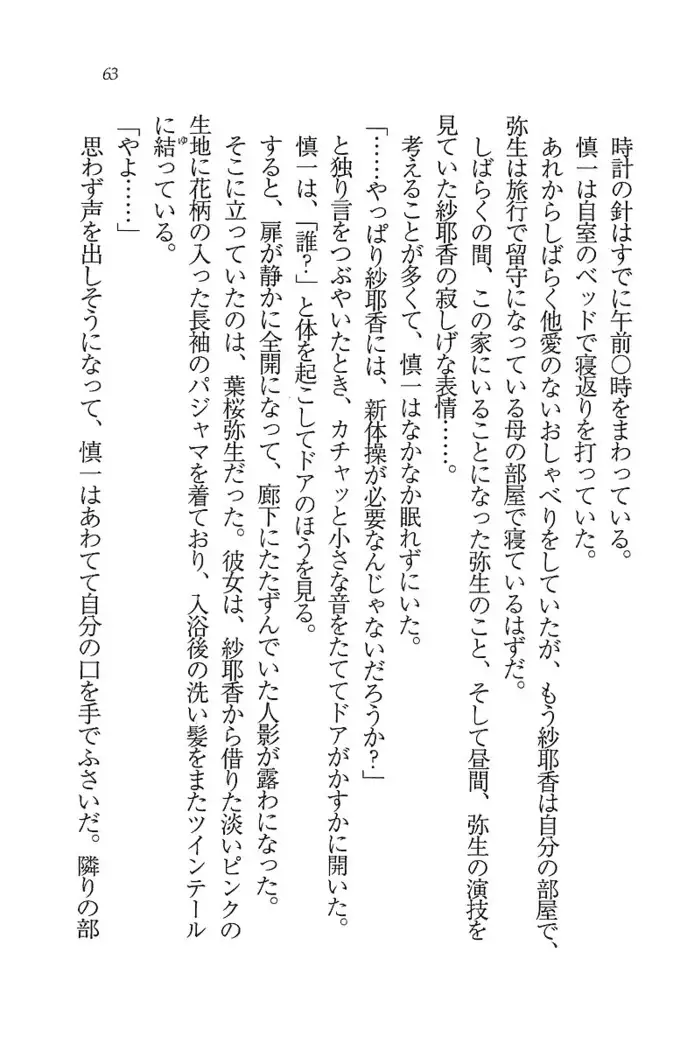 63
時計の針はすでに午前〇時をまわっている。
慎一は自室のベッドで寝返りを打っていた。
あれからしばらく他愛のないおしゃべりをしていたが、もう紗耶香は自分の部屋で、
弥生は旅行で留守になっている母の部屋で寝ているはずだ。
しばらくの間、この家にいることになった弥生のこと、そして昼間、弥生の演技を
見ていた紗耶香の寂しげな表情……。
考えることが多くて、慎一はなかなか眠れずにいた。
「……やっぱり紗耶香には、新体操が必要なんじゃないだろうか?」
と独り言をつぶやいたとき、カチャッと小さな音をたててドアがかすかに開いた。
慎一は、「誰?」と体を起こしてドアのほうを見る。
すると、扉が静かに全開になって、廊下にたたずんでいた人影が露わになった。
そこに立っていたのは、葉桜弥生だった。彼女は、紗耶香から借りた淡いピンクの
生地に花柄の入った長袖のパジャマを着ており、入浴後の洗い髪をまたツインテール
に結ゆっている。
「やよ……」
思わず声を出しそうになって、慎一はあわてて自分の口を手でふさいだ。隣りの部